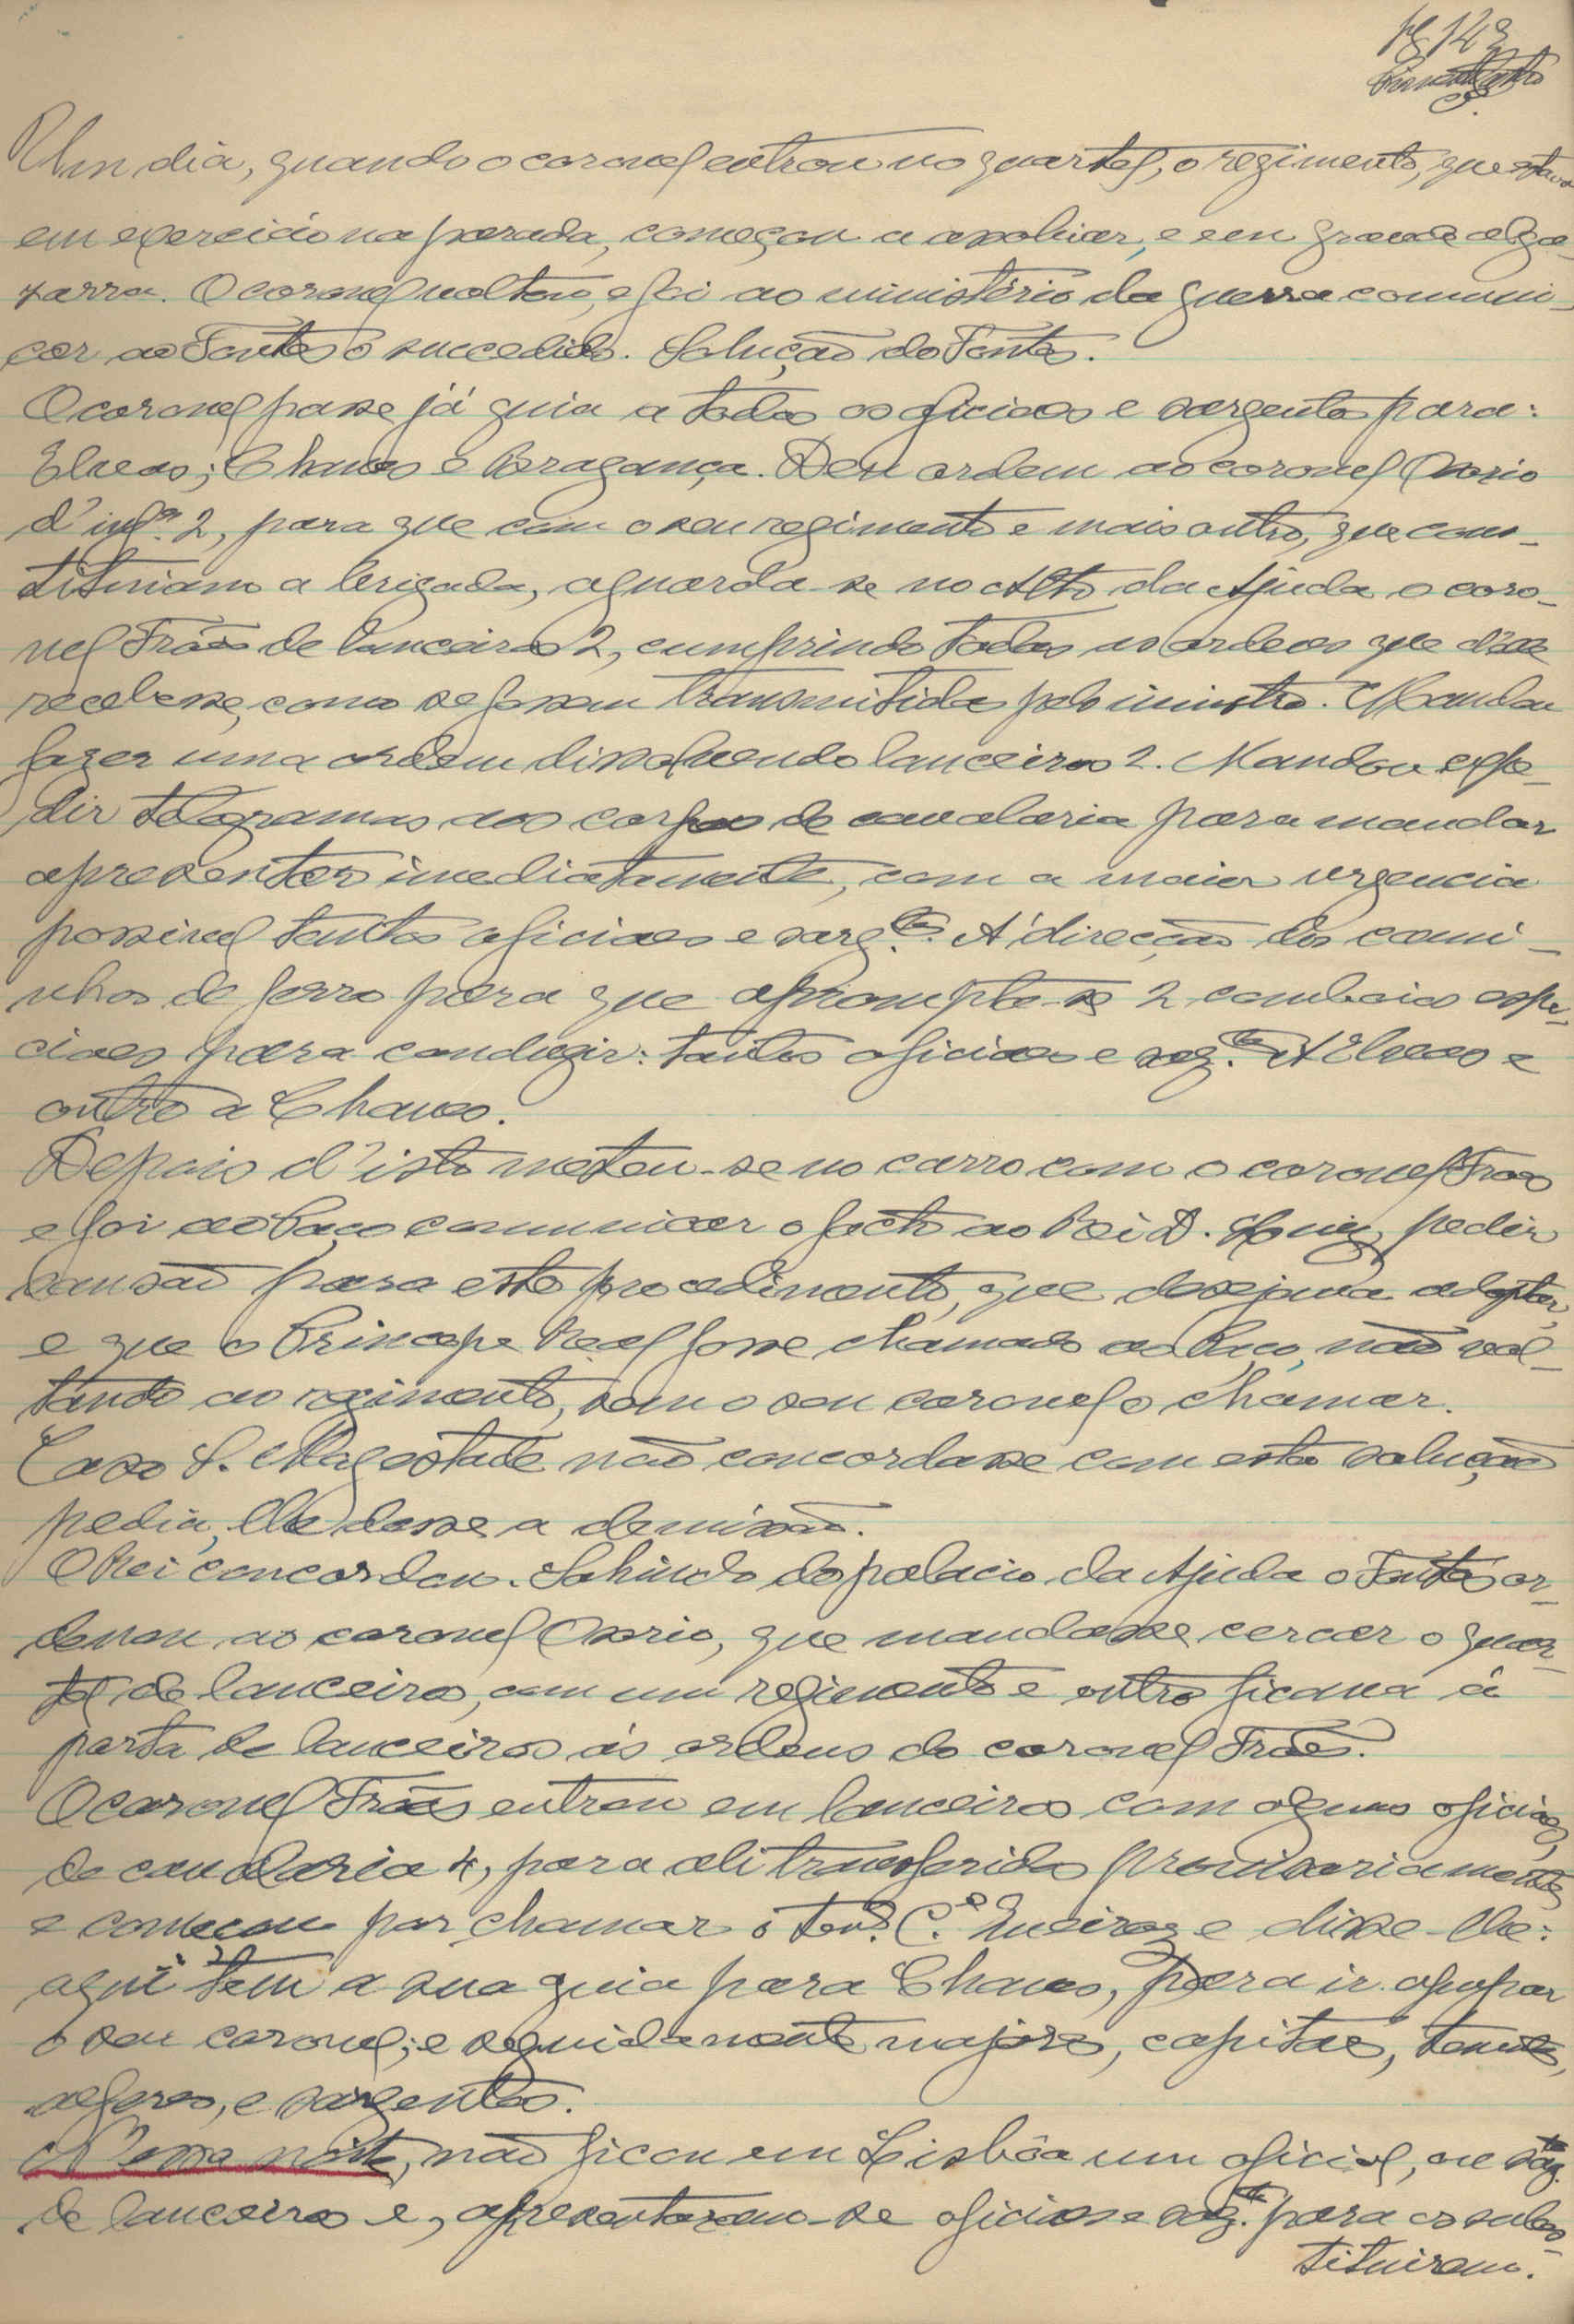 pg 142
Um dia, quando o coronel entrou no quartel, o regimento, que estava
em exercicio na parada, começou a assobiar, e em grande alga-
zarra. O coronel voltou, e foi ao ministério da guerra comuni-
car ao Fontes o succedido. Solução do Fontes.
O coronel passe já guia a todos os oficiaes e sargentos para:
Elvas; Chaves e Bragança. Deu ordem ao coronel Osorio
d'infª. 2, para que com o seu regimento e mais outro, que cons-
tituiriam a brigada, aguarda-se no Alto da Ajuda o coro-
nel Trãos de lanceiros 2, cumprindo todas as ordens que d'elle
recebesse, como se fossem transmitidas pelo ministro. Mandou
fazer uma ordem dissolvendo lanceiros 2. Mandou expe-
dir telegramas aos corpos de cavalaria para mandar
apresentar imediatamente, com a maior urgencia
possivel tantos oficiaes e sarg.tos. A' direcção dos cami-
nhos de ferro para que aprompta-se 2 comboios espe-
ciaes para conduzir: tantos oficiaes e sarg.tos A Elvas e
outro a Chaves.
Depois d'isto meteu-se no carro com o coronel Trãos
e foi ao Paço comunicar o facto ao Rei D. Luiz, pedir
sansão para este procedimento, que desejava adoptar,
e que o Principe Real fosse chamado ao Paço, não vol-
tando ao regimento, sem o seu coronel o chamar.
Caso S. Magestade não concordasse com esta solução
pedia, lhe desse a demissão.
O Rei concordou. Sahindo do palacio da Ajuda o Fontes or-
denou ao coronel Osorio, que mandasse cercar o quar-
tel de lanceiros, com um regimento e outro ficava á
porta de lanceiros ás ordens do coronel Trãos.
O coronel Trãos entrou em lanceiros com alguns oficiaes,
de cavalaria 4, para ali transferidos provisoriamente
e começou por chamar o ten.e C.el Queiroz e disse-lhe:
aqui tem a sua guia para Chaves, para ir apupar
o seu coronel; e seguidamente majores, capitães, tenentes,
alferes, e sargentos.
N'essa noite, não ficou em Lisbôa um oficial, ou sarg.to
de lanceiros e, apresentaram-se oficiaes e sarg.tos para os subs-
tituirem.